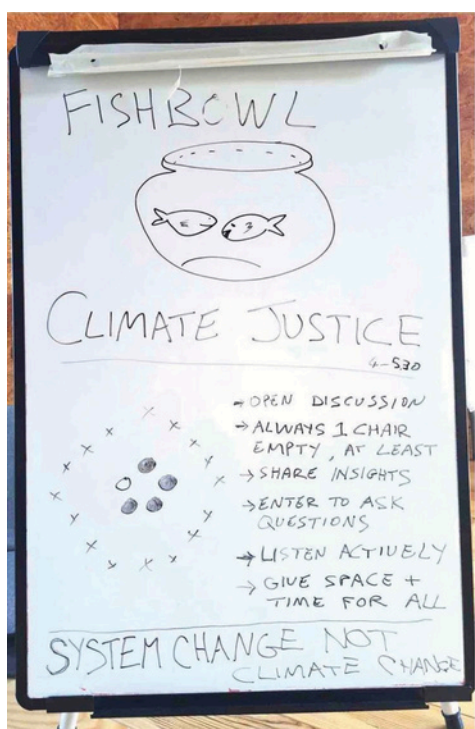 FISHBOWL
CLIMATE JUSTICE
4-530
→ OPEN DISCUSSION
→ ALWAYS 1 CHAIR
EMPTY, AT LEAST
→ SHARE INSIGHTS
→ ENTER TO ASK
QUESTIONS
→ LISTEN ACTIVELY
→ GIVE SPACE +
TIME FOR ALL
SYSTEM CHANGE NOT
CLIMATE CHANGE